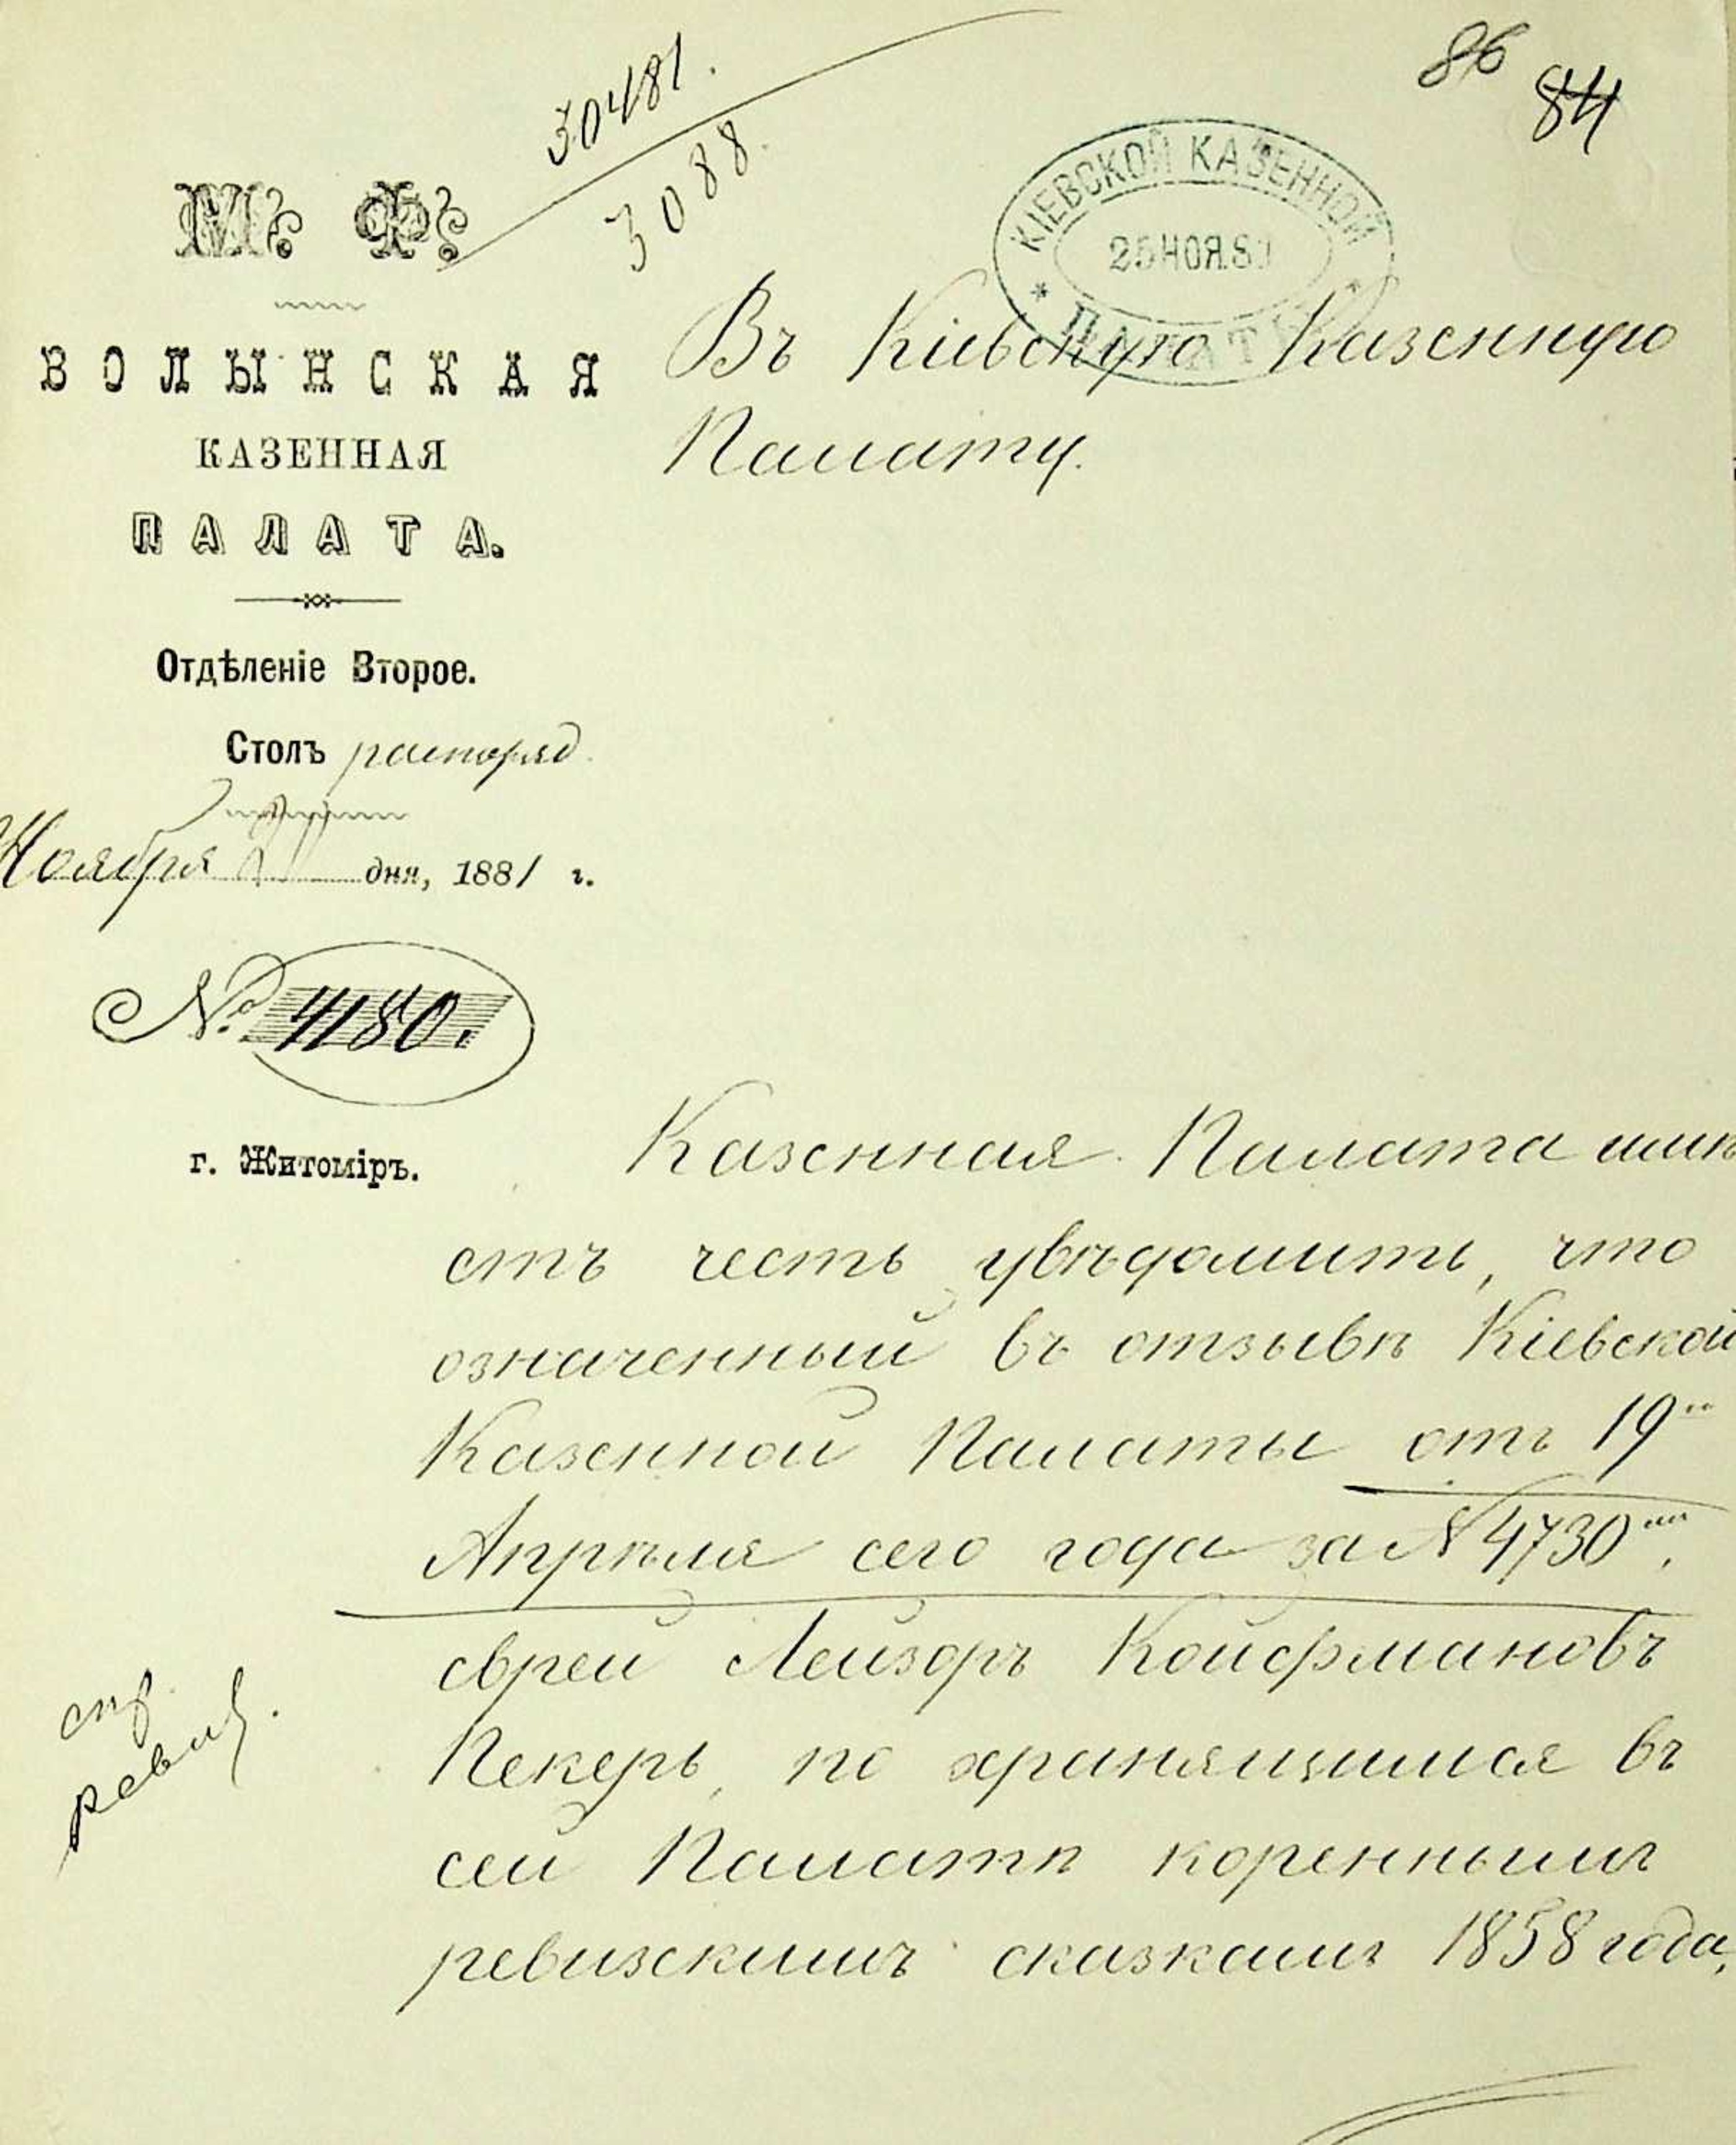 86
84
30481.
3088.
КІЕВСКОЙ КАЗЕННОЙ
ПАЛАТ
М. Ф.
ВОЛЫНСКАЯ
КАЗЕННАЯ
ПАЛАТА.
Отдѣленіе Второе.
Столъ распоряд.
Ноября дня, 1881 г.
№ 4180.
г. Житоміръ.
Въ Кіевскую Казенную
Палату.
Казенная Палата имѣ
етъ честь увѣдомить, что
означенный въ отзывѣ Кіевской
Казенной Палаты отъ 19го
Апрѣля сего года за № 4730мъ,
еврей Лейзоръ Койфмановъ
Пекеръ, по хранящимся въ
сей Палатѣ кореннымъ
ревизскимъ сказкамъ 1858 года,